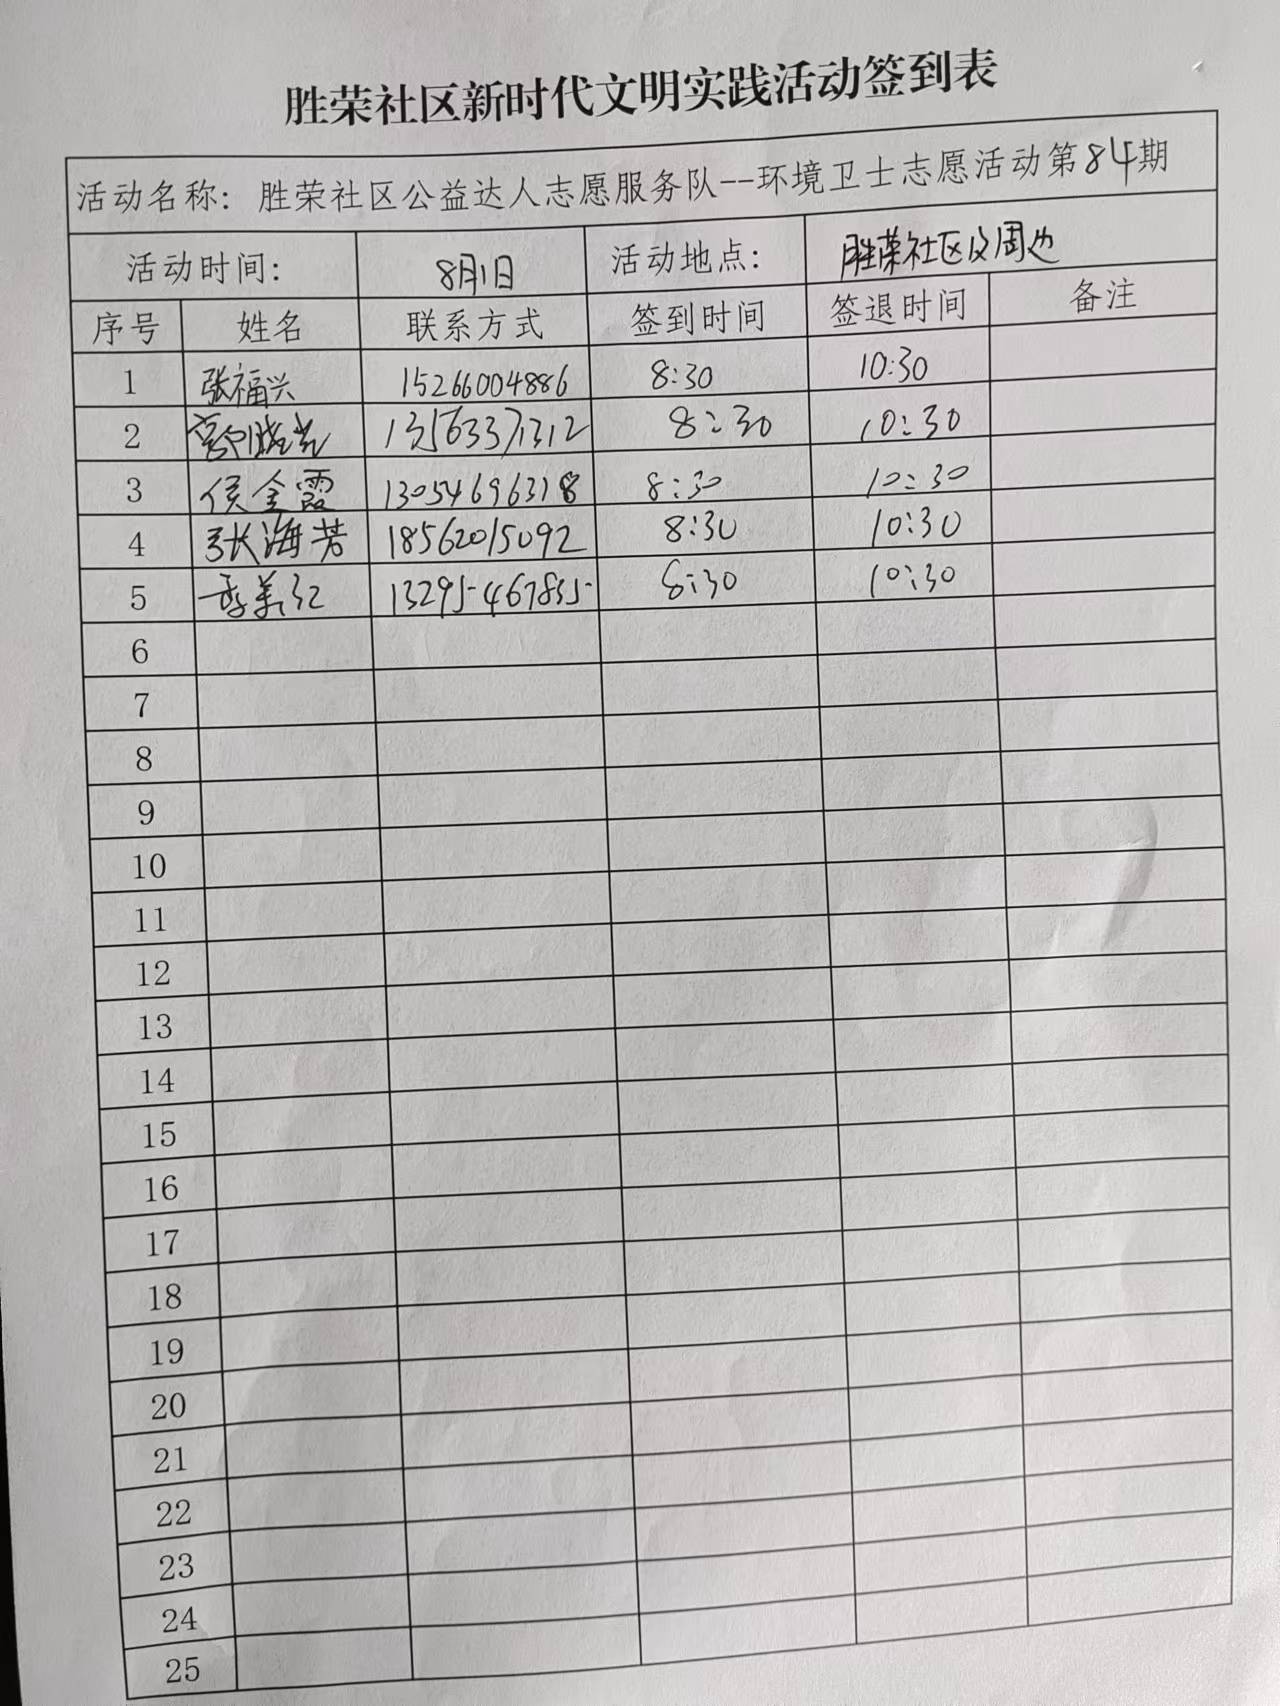 胜荣社区新时代文明实践活动签到表
活动名称：胜荣社区公益达人志愿服务队--环境卫士志愿活动第84期
活动时间： 8月1日 活动地点： 胜荣社区及周边
序号 姓名 联系方式 签到时间 签退时间 备注
1 张福兴 15266004886 8:30 10:30
2 13563371312 8:30 10:30
3 侯金霞 13054696318 8:30 10:30
4 张海芳 18562015092 8:30 10:30
5 季美红 13295467835 8:30 10:30
6
7
8
9
10
11
12
13
14
15
16
17
18
19
20
21
22
23
24
25